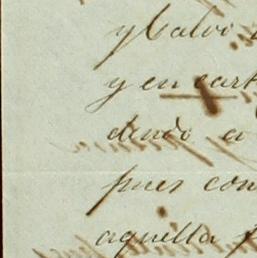 y Calvo
y en cart
dando a
pues con
aquella